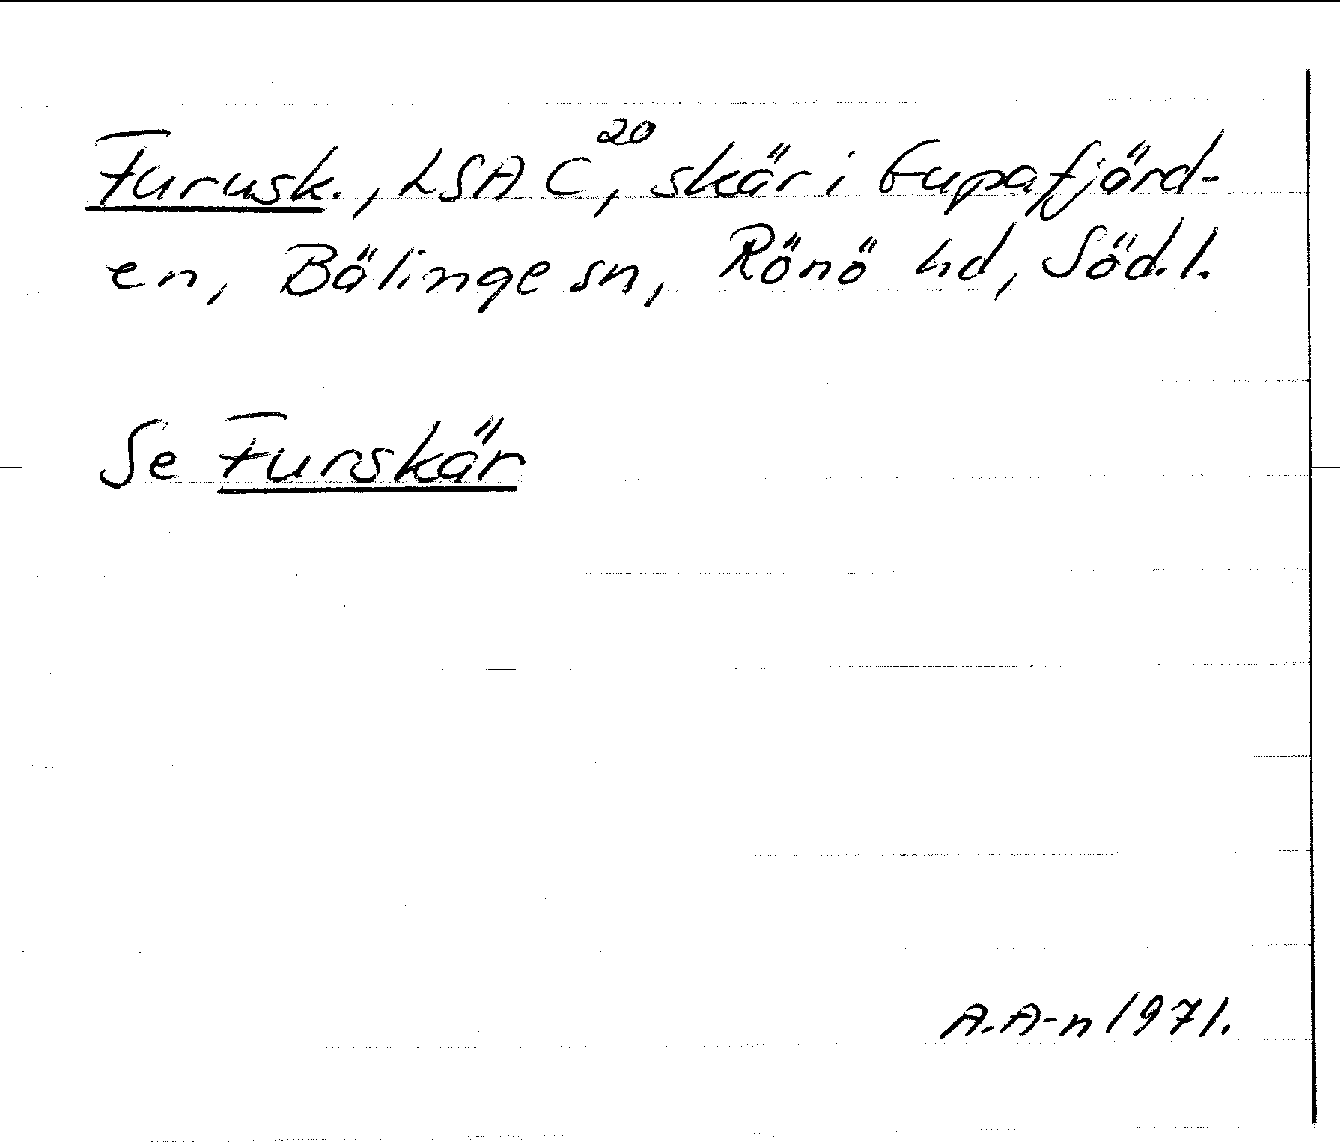 Furusk., LSA C²⁰, skär i Gupafjärd-
en, Bälinge sn, Rönö hd, Söd.l.
Se Furskär
A.A-n 1971.